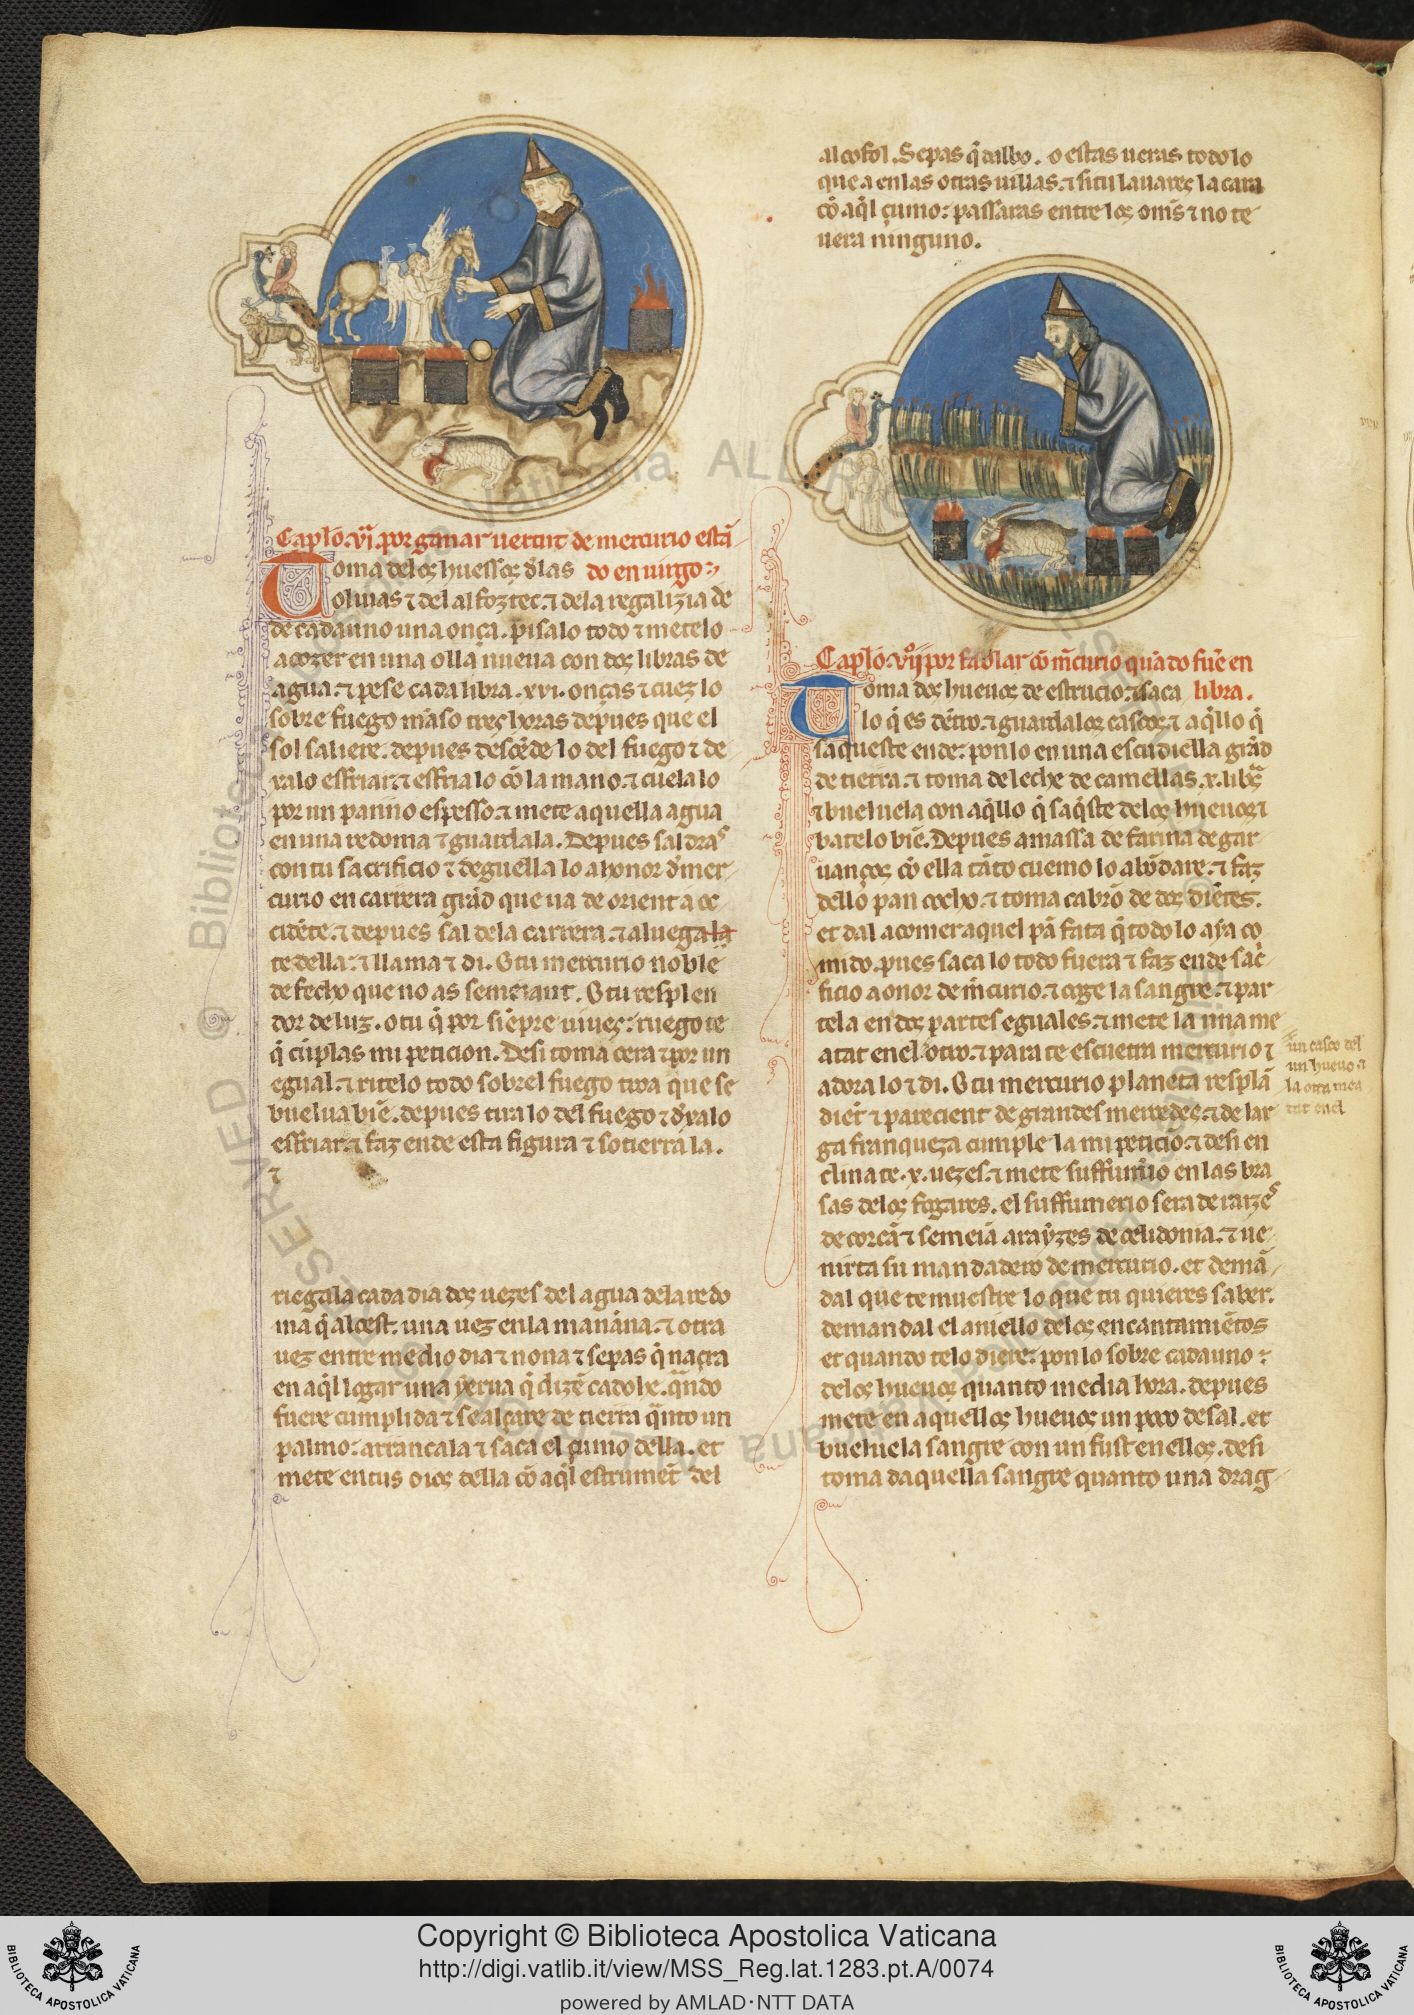 Caplo. vi. por ganar vertut de mercurio estã
Toma delos huessos dlas do en uirgo:
oliuas ⁊ del alfoztec. ⁊ dela regalizia de
de cada uno una onça. pisalo todo ⁊ metelo
a cozer en una olla nueua con dos libras de
agua. ⁊ pese cada libra .xvi. onças ⁊ cuez lo
sobre fuego mãso tres horas depues que el
sol saliere. depues desçẽde lo del fuego ⁊ de
xalo esfriar. ⁊ esfria lo cõ la mano. ⁊ cuela lo
por un panno espesso. ⁊ mete aquella agua
en una redoma ⁊ guardala. Depues saldras
con tu sacrificio ⁊ deguella lo a honor d̓ mer
curio en carrera grãd que ua de orient a oc
cidẽte. ⁊ depues sal dela carrera. ⁊ aluegala
te della: ⁊ llama ⁊ di. O tu mercurio noble
de fecho que no as semeiant. O tu resplen
dor de luz. o tu q̃ por siẽpre uiues: ruego te
q̃ cũplas mi peticion. Desi toma cera ⁊ por un
egual. ⁊ ritelo todo sobrel fuego troa que se
buelua biẽ. depues tira lo del fuego ⁊ d̓xalo
esfriar. ⁊ faz ende esta figura ⁊ sotierra la.
⁊
riegala cada dia dos uezes del agua dela redo
ma q̃ alcest. una uez en la mannana. ⁊ otra
uez entre medio dia ⁊ nona ⁊ sepas q̃ naçra
en aq̃l logar una yerua q̃ dizẽ cadohe. q̃ndo
fuere cumplida ⁊ se alçare de tierra q̃nto un
palmo: arrancala ⁊ saca el çumo della. et
mete en tus oios della cõ aq̃l estrumẽt del
alcofol. Sepas q̃ dalbo. o estas ueras todo lo
que a en las otras uillas. ⁊ si tu lauares la cara
cõ aq̃l çumo: passaras entre los oms̃ ⁊ no te
uera ninguno.
Caplo. vijº por fablar cõ m̃curio quãdo fuẽ en
Toma dos hueuos de estrucio. ⁊ saca libra.
lo q̃ es dẽtro. ⁊ guarda los cascos. ⁊ aq̃llo q̃
saqueste ende: pon lo en una escudiella grãd
de tierra. ⁊ toma de leche de camellas .x. libras
⁊ buelue la con aq̃llo q̃ saq̃ste delos hueuos ⁊
batelo biẽ. Depues amassa de farina de gar
uanços cõ ella tãto cuemo lo abõdare. ⁊ faz
dello pan cocho. ⁊ toma cabrõ de dos diẽtes.
et dal a comer aquel pã fata q̃ todo lo aya co
mido. pues saca lo todo fuera ⁊ faz ende sac̃
ficio a onor de m̃curio. ⁊ coge la sangre. ⁊ par
tela en dos partes eguales. ⁊ mete la una me
atat en el otro. ⁊ para te escuetra mercurio ⁊
adora lo ⁊ di. O tu mercurio planeta resplã
diet̃ ⁊ parecient de grandes mercedes. ⁊ de lar
ga franqueza cumple la mi peticiõ. ⁊ desi en
clina te .x. uezes. ⁊ mete suffũmio en las bra
sas delos fogares. el suffumerio sera de raizes
de corcã ⁊ semeiã a rayzes de celidonia. ⁊ ue
nirta su mandadero de mercurio. et demã
dal que te muestre lo que tu quieres saber.
demandal el aniello delos encantamiẽtos
et quando telo diere: pon lo sobre cada uno
delos hueuos quanto media hora. depues
mete en aquellos hueuos un poco de sal. et
buelue la sangre con un fust en ellos. desi
toma daquella sangre quanto una drag
un casco del
un hueuo ⁊
la otra mea
tat en el
Copyright © Biblioteca Apostolica Vaticana
http://digi.vatlib.it/view/MSS_Reg.lat.1283.pt.A/0074
powered by AMLAD·NTT DATA
BIBLIOTECA APOSTOLICA VATICANA
BIBLIOTECA APOSTOLICA VATICANA